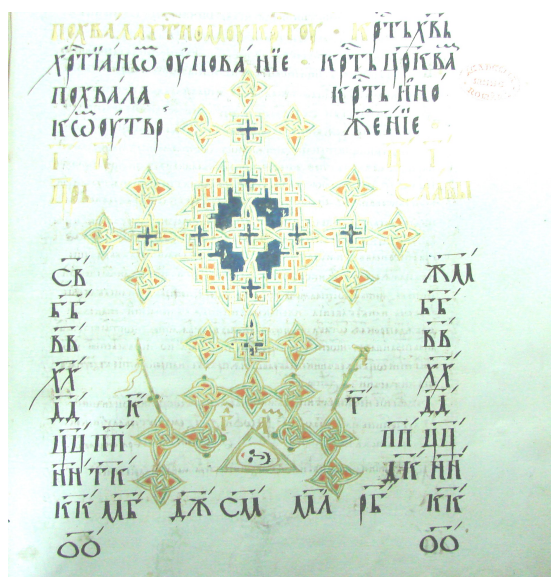 похвала ч҃тномоу кр҃тоу · кр҃ть хв҃ь
хр҃тїанѡⷨ оупованїе · кр҃ть цр҃ква
похвала кр҃ть ино
кѡⷨ оутвр женїе
Црь Славы
С҃В Ж҃М
Б҃Б Б҃Б
В҃В В҃В
Х҃Х Х҃Х
Д҃Д К҃ Т҃ Д҃Д
Ц҃Ц П҃П П҃П Ц҃Ц
Н҃Н Т҃К Д҃К Н҃Н
К҃К М҃Б Д҃Ж С҃М М҃Л Р҃Б К҃К
О҃О О҃О